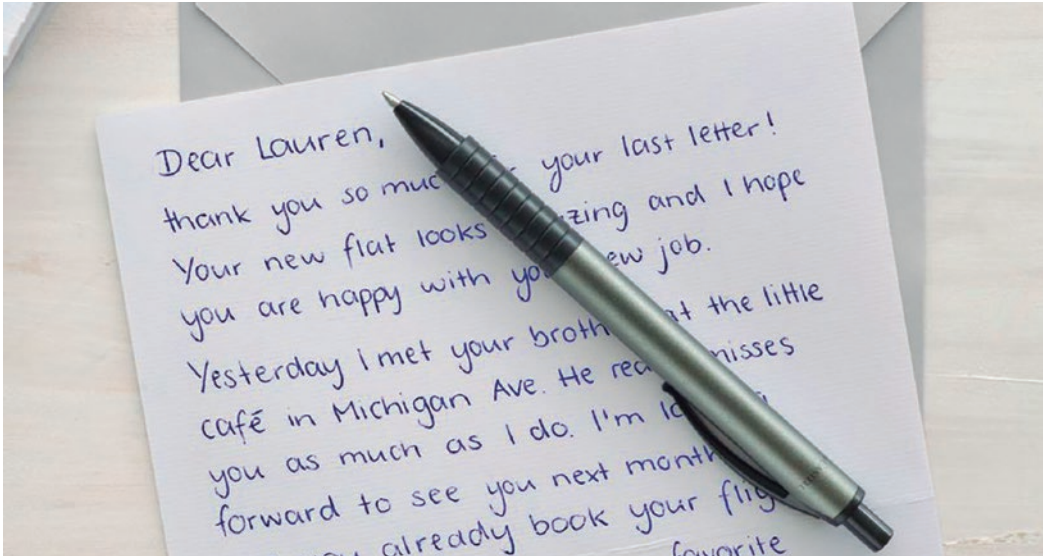 Dear Lauren,
thank you so much your last letter!
Your new flat looks and I hope
you are happy with job.
Yesterday I met your at the little
café in Michigan Ave. He misses
you as much as I do. I'm
forward to see you next month
already book your
favorite